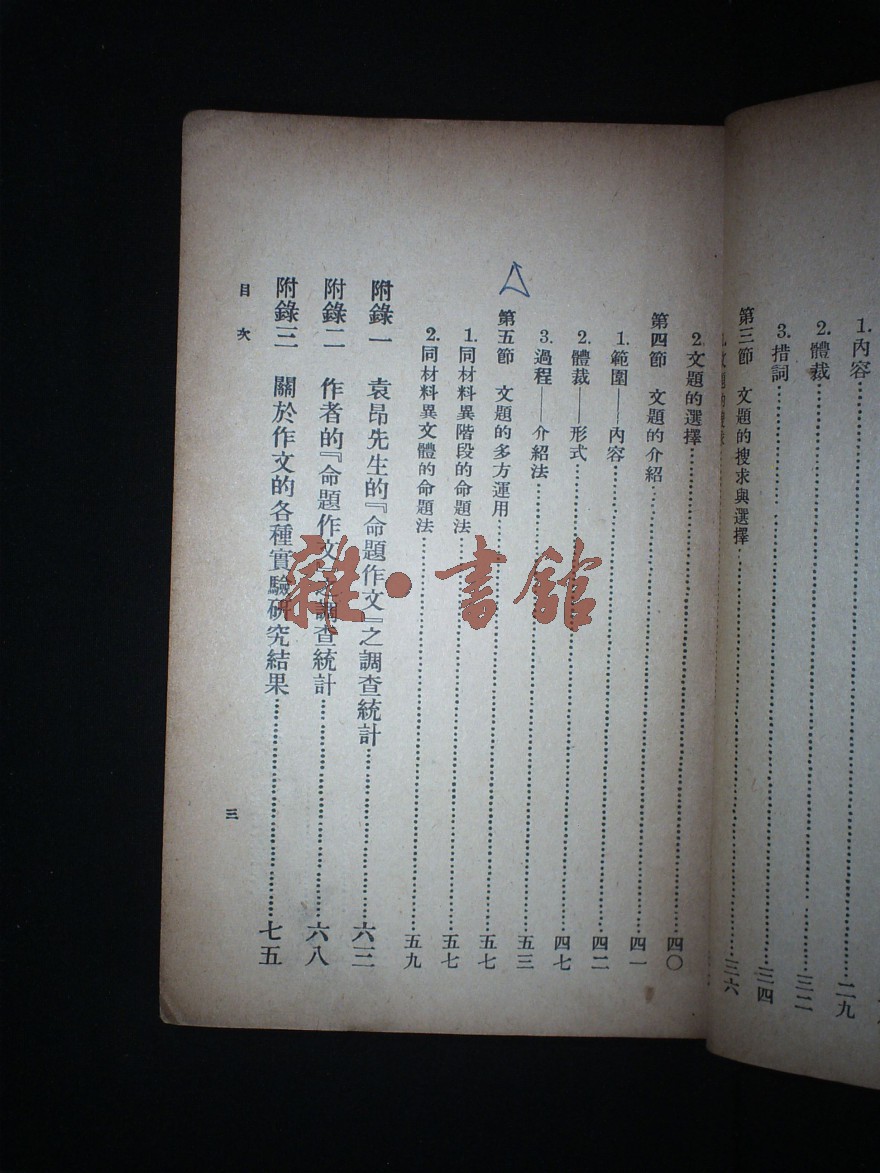 1.內容……二九
2.體裁……三二
3.措詞……三四
第三節 文題的搜求與選擇……三六
2.文題的選擇……四〇
第四節 文題的介紹……四一
1.範圍——內容……四二
2.體裁——形式……四七
3.過程——介紹法……五三
第五節 文題的多方運用……五七
1.同材料異階段的命題法……五七
2.同材料異文體的命題法……五九
附錄一 袁昂先生的『命題作文』之調查統計……六三
附錄二 作者的『命題作文』之調查統計……六八
附錄三 關於作文的各種實驗研究結果……七五
目次
三
雜·書館